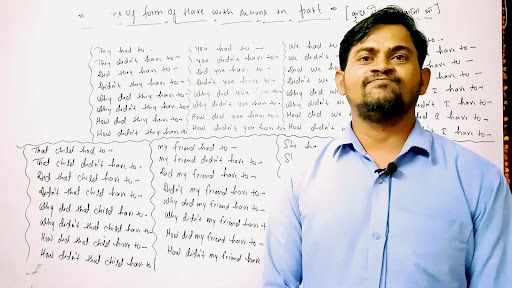 of form of Have with Actions in past
They had to -
They didn't have to -
Did they have to -
Didn't they have to -
Why did they have to -
Why didn't they have to -
How did they have to -
How didn't they have to -
you had to -
you didn't have to -
Did you have to -
Didn't you have to -
Why did you
Why didn't you have to -
How did you have to -
How didn't you have to
We had to
We didn't
Did we ha
Didn't we
Why did
Why didn't
How did
How didn't
have to -
have to -
I have to -
I have to -
I have to -
I have to -
That child had to -
That child didn't have to -
Did that child have to -
Didn't that child have to -
Why did that child have to -
Why didn't that child have to -
How did that child have to -
How didn't that child have to
my friend had to -
my friend didn't have to -
Did my friend have to -
Didn't my friend have to -
Why did my friend have to -
Why didn't my friend have t
How did my friend have to -
How didn't my friend have
She ha
S